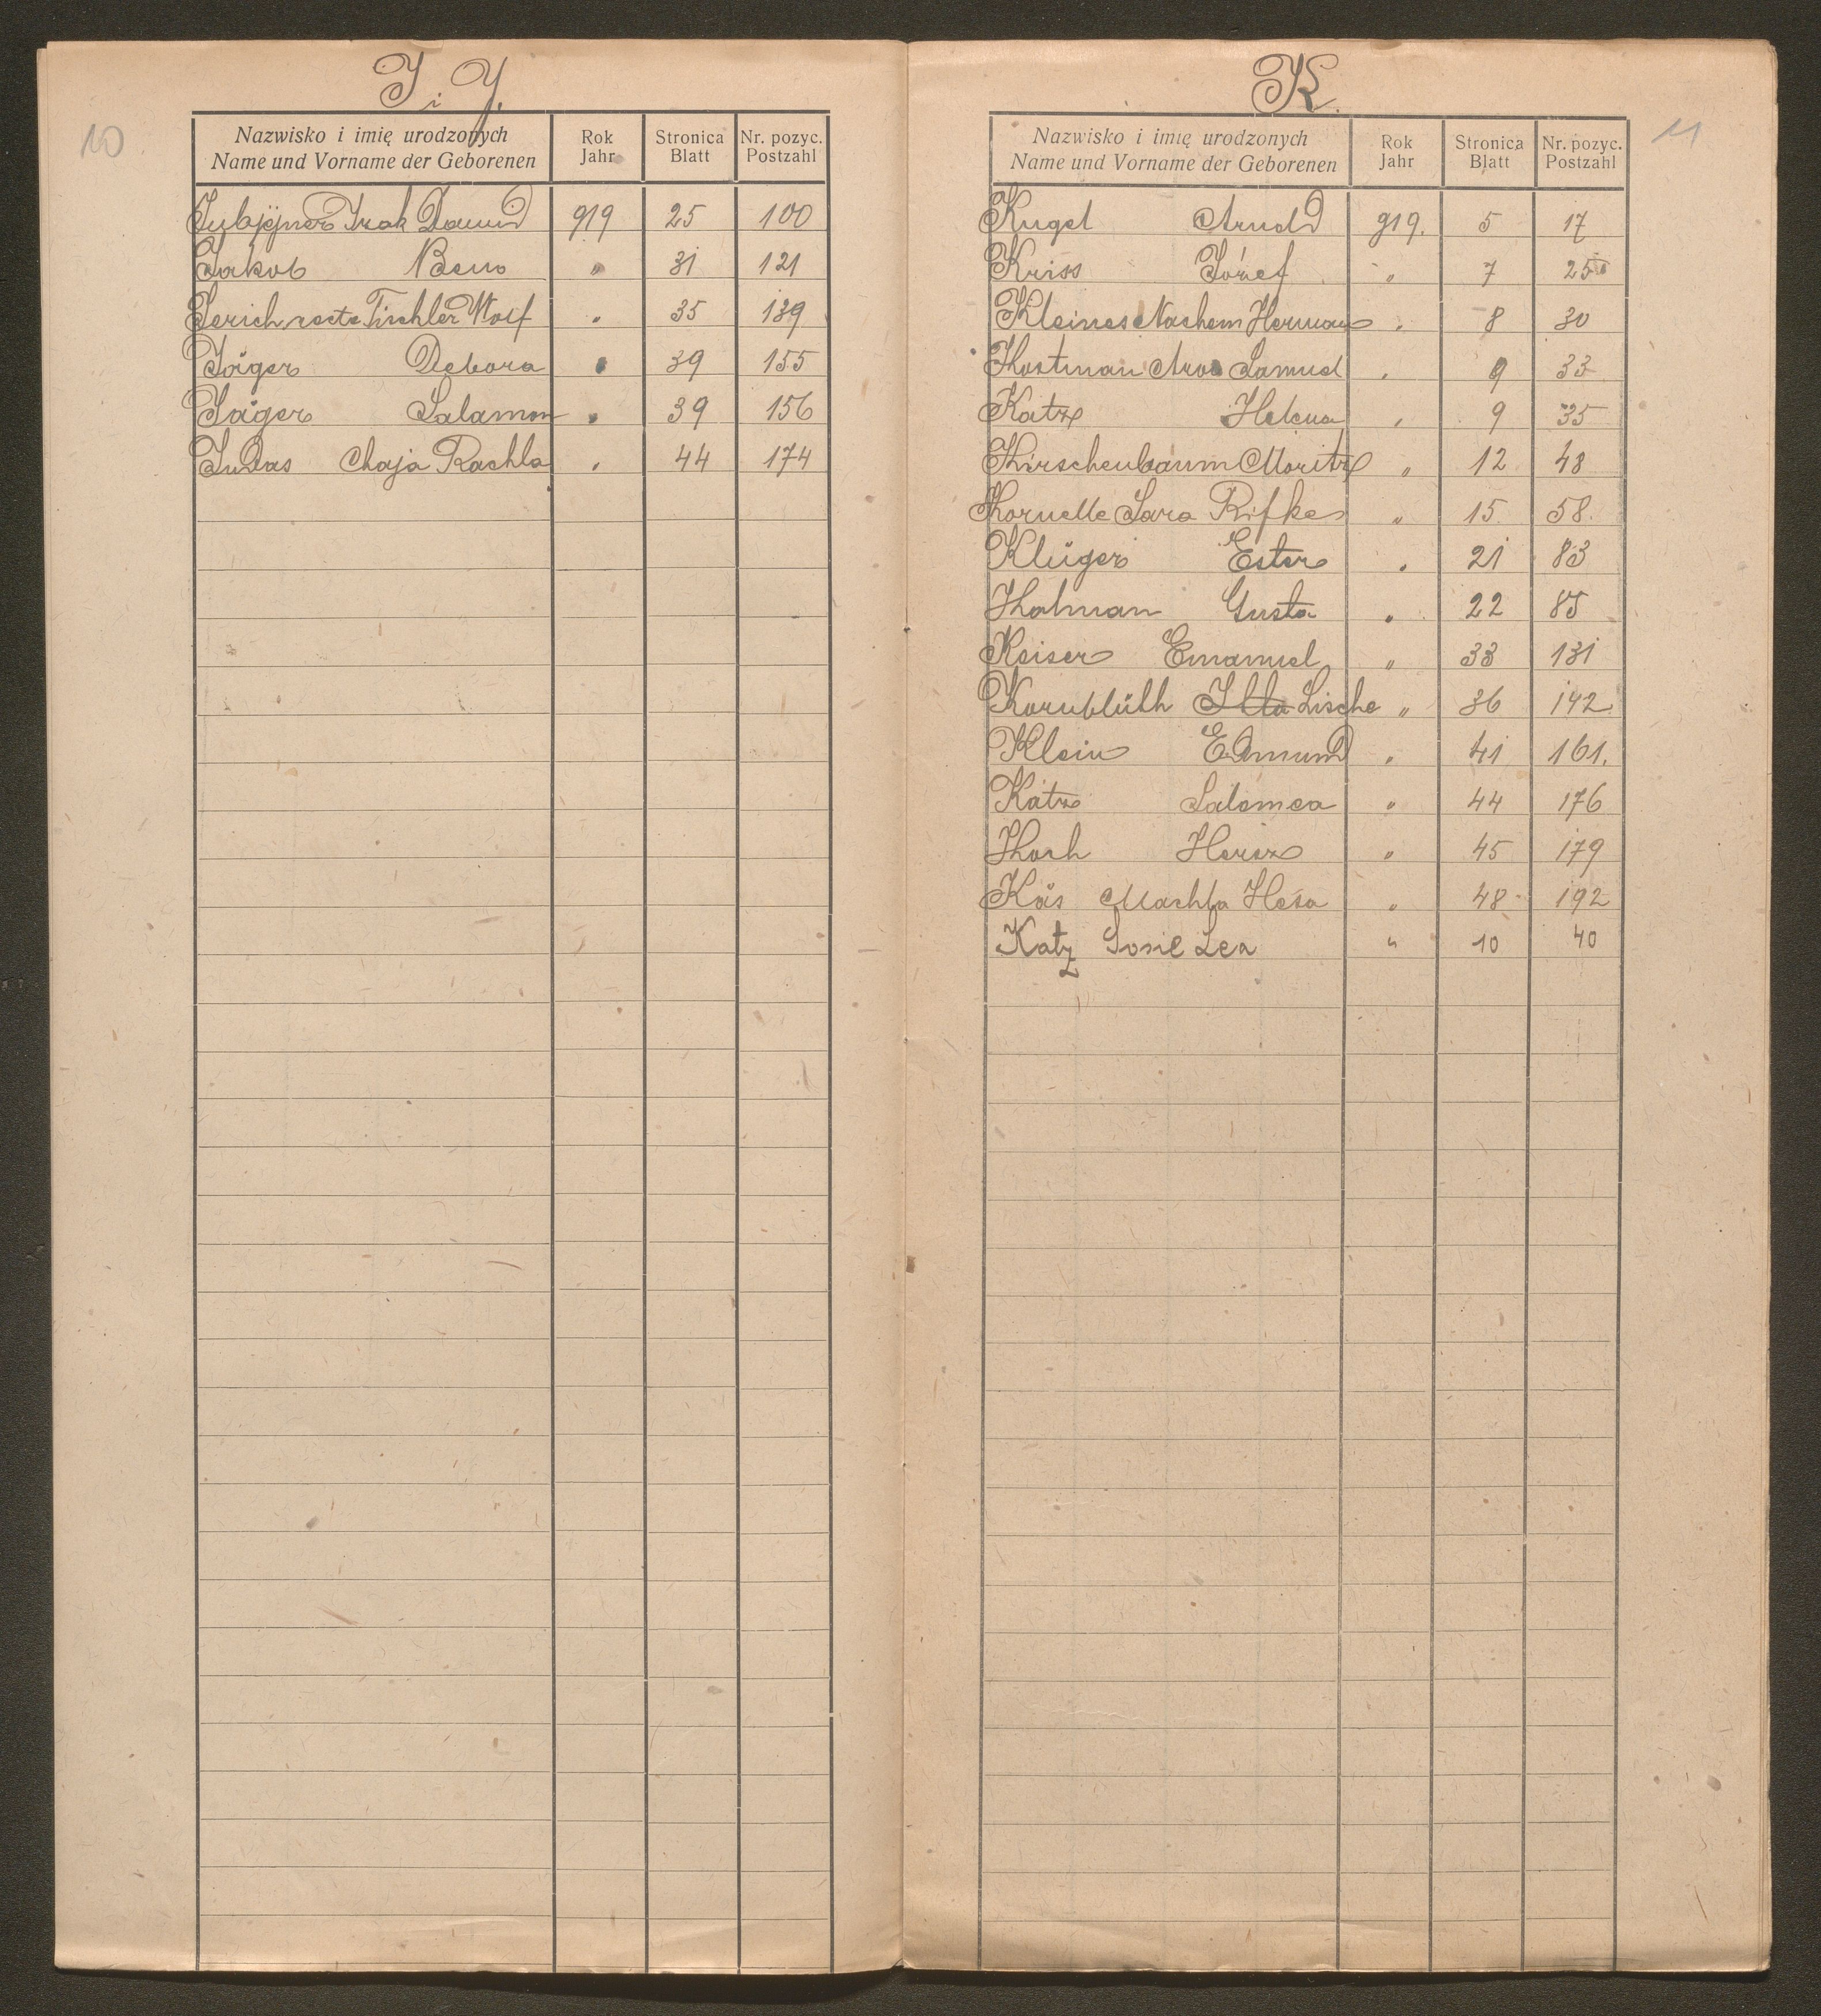 10
I i Y.
Nazwisko i imię urodzonych Rok Stronica Nr. pozyc.
Name und Vorname der Geborenen Jahr Blatt Postzahl
Izak Dawid 919 25 100
Jakob Beno " 31 121
Jerich recte Tischler Wolf " 35 139
Jäger Debora " 39 155
Jäger Salamon " 39 156
Judas Chaja Rachla " 44 174
K.
11
Nazwisko i imię urodzonych Rok Stronica Nr. pozyc.
Name und Vorname der Geborenen Jahr Blatt Postzahl
Kugel Arnold 919. 5 17
Kriss Józef " 7 25
Kleines Nachem Herman " 8 30
Kostman Aron Samuel " 9 33
Katz Helena " 9 35
Kirschenbaum Moritz " 12 48
Kornelle Sara Rifke " 15 58.
Klüger Ester " 21 83
Kalman Gusta " 22 85
Keiser Emanuel " 33 131
Kornblüth Itta Lische " 36 142
Klein Edmund " 41 161.
Katz Salomea " 44 176
Koch Hersz " 45 179
Käs Machla Hesa " 48 192
Katz Sosie Lea " 10 40